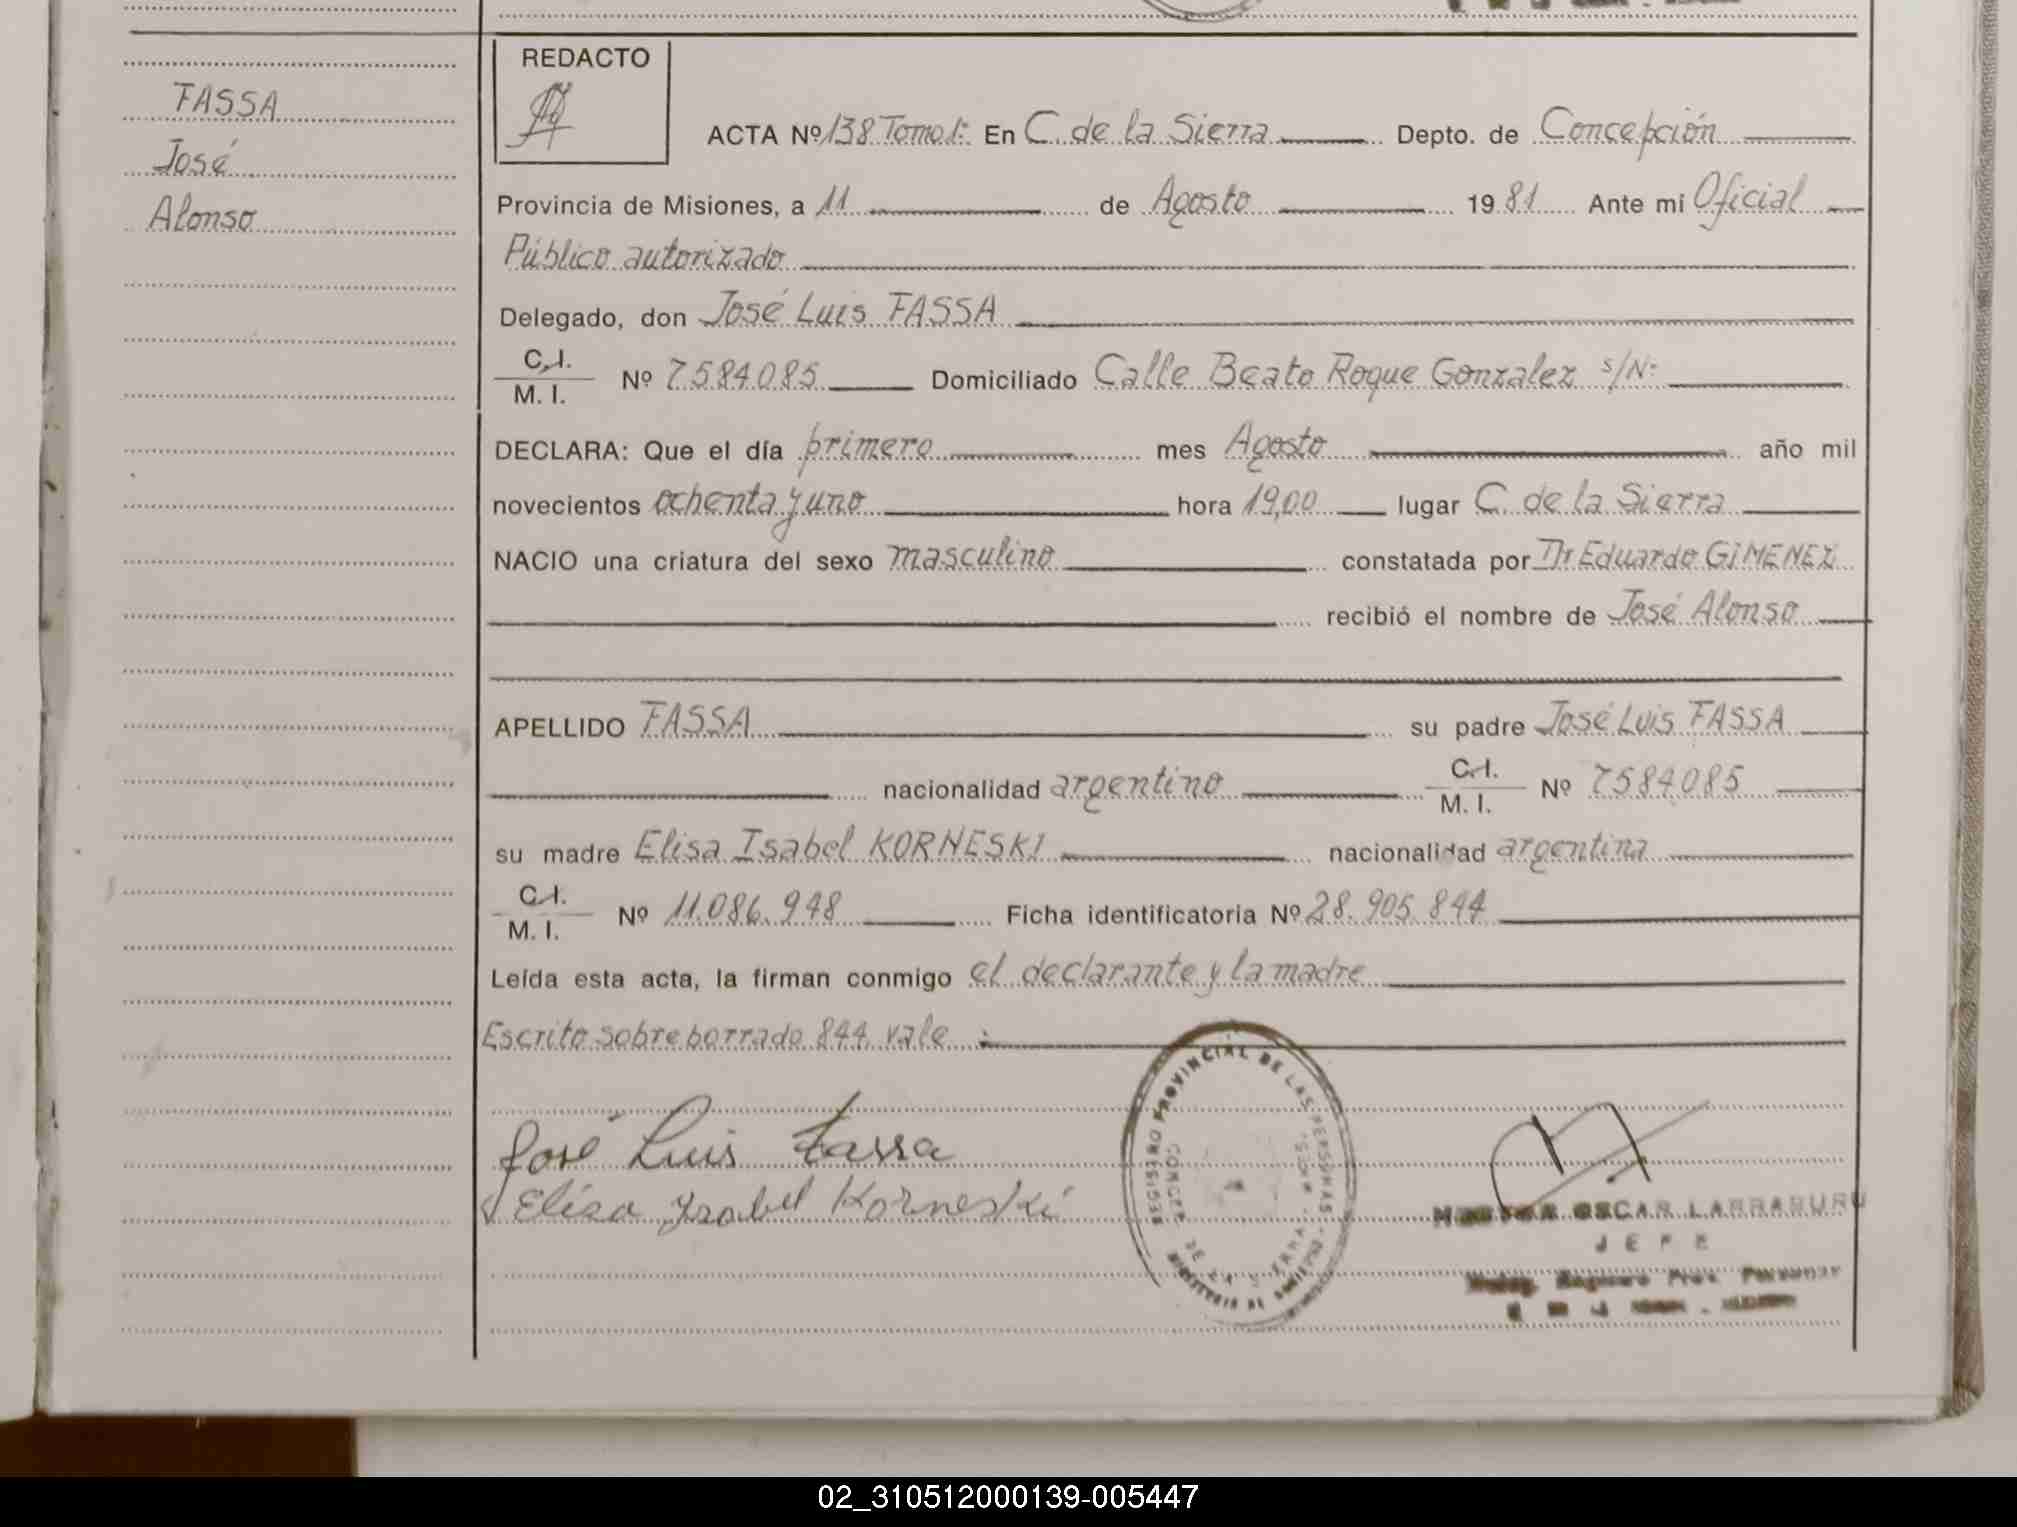 FASSA
José
Alonso
REDACTO
ACTA Nº 138 Tomo 1º En C. de la Sierra Depto. de Concepción
Provincia de Misiones, a 11 de Agosto 1981 Ante mí Oficial
Público autorizado
Delegado, don José Luis FASSA
C.I. M.I. Nº 7584085 Domiciliado Calle Beato Roque Gonzalez s/Nº
DECLARA: Que el día primero mes Agosto año mil
novecientos ochenta y uno hora 19,00 lugar C. de la Sierra
NACIO una criatura del sexo masculino constatada por Dr Eduardo GIMENEZ
recibió el nombre de José Alonso
APELLIDO FASSA su padre José Luis FASSA
nacionalidad argentino C.I. M.I. Nº 7584085
su madre Elisa Isabel KORNESKI nacionalidad argentina
C.I. M.I. Nº 11.086.948 Ficha identificatoria Nº 28.905.844
Leída esta acta, la firman conmigo el declarante y la madre
Escrito sobre borrado 844 vale
José Luis Fassa
Elisa Isabel Korneski
REGISTRO PROVINCIAL DE LAS PERSONAS
OSCAR LARRABURU
JEFE
02_310512000139-005447